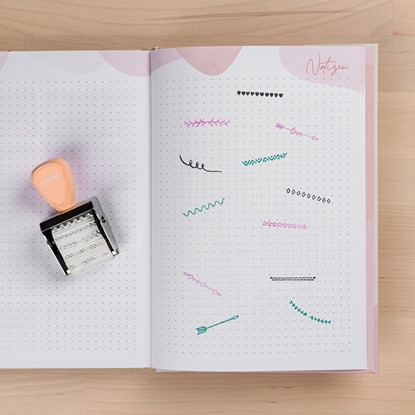 Notizen
love